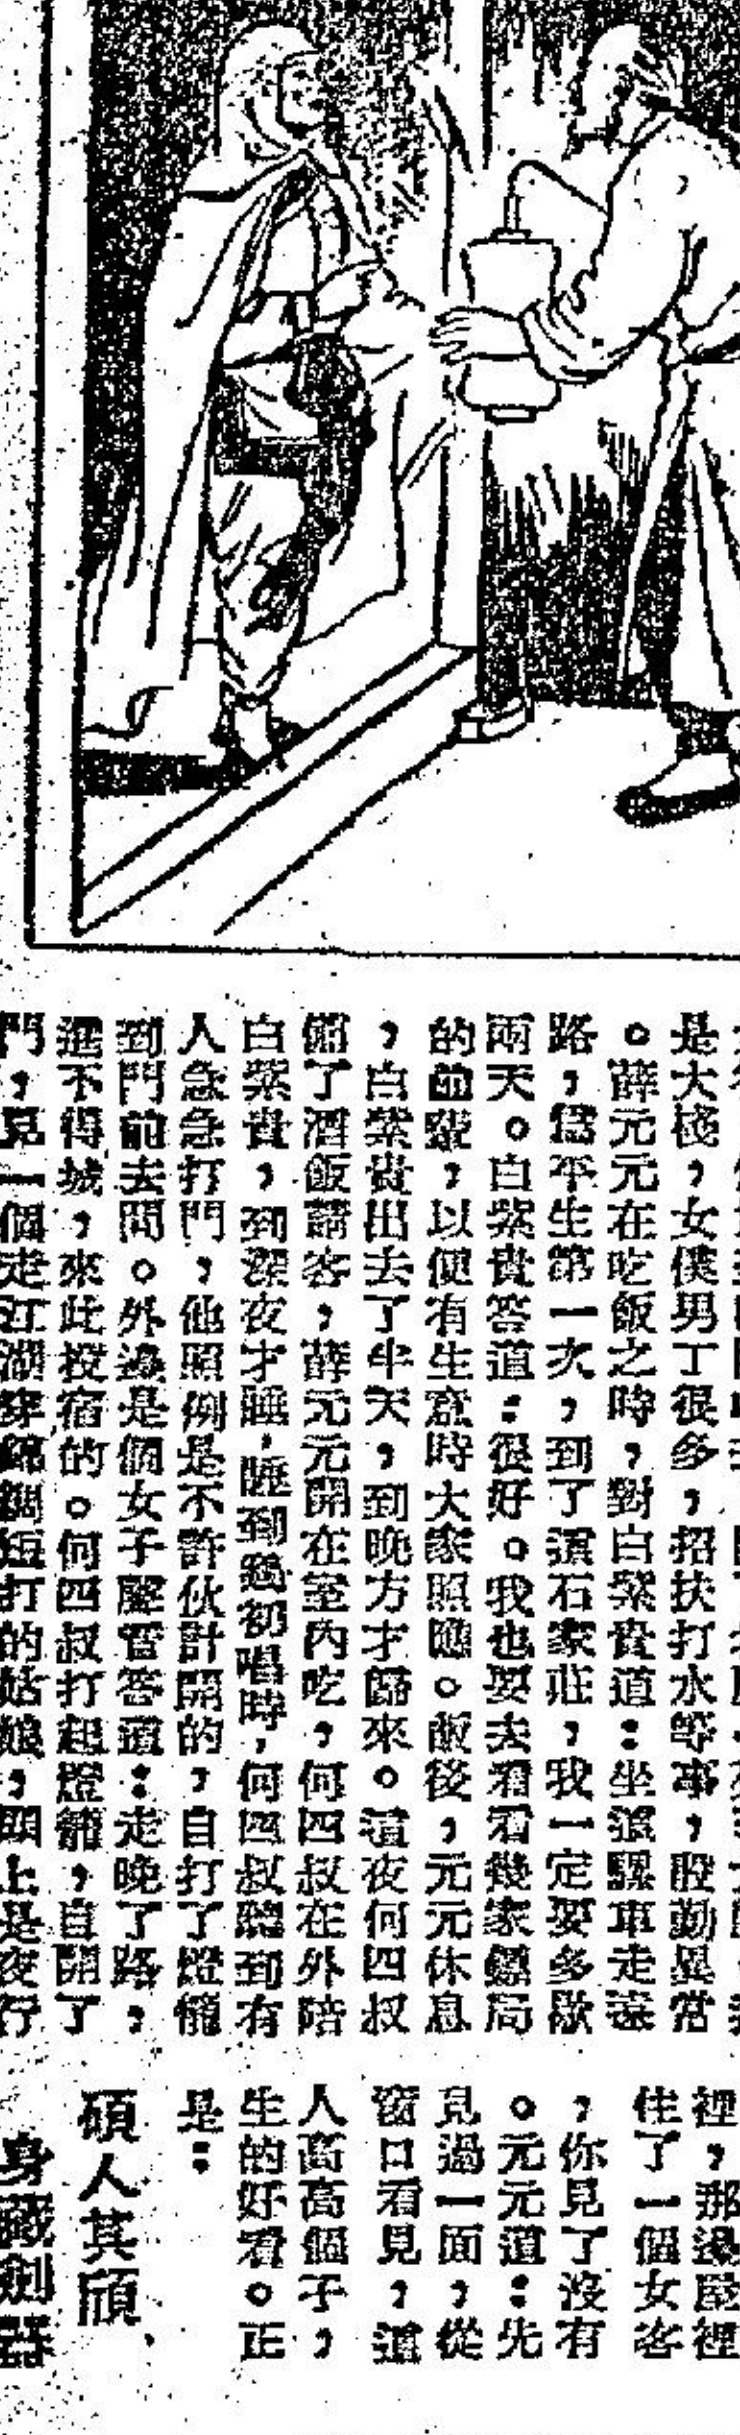 是大棧，女僕男丁很多，招扶打水等事，殷勤異常
。薛元元在吃飯之時，對白紫貴道：坐這騾車走遠
路，爲平生第一次，到了這石家莊，我一定要多歇
兩天。白紫貴答道：很好。我也要去看看幾家鏢局
的前輩，以便有生意時大家照應。飯後，元元休息
，白紫貴出去了半天，到晚方才歸來。這夜何四叔
備了酒飯請客，薛元元開在室內吃，何四叔在外陪
白紫貴，到深夜才睡，睡到鷄初唱時，何四叔聽到有
人急急打門，他照例是不許伙計開的，自打了燈籠
到門前去問。外邊是個女子聲音答道：走晚了路，
進不得城，來此投宿的。何四叔打起燈籠，自開了
門，見一個走江湖穿綿綢短打的姑娘，頭上是夜行
裡，那邊屋裡
住了一個女客
，你見了沒有
。元元道：先
見過一面，從
窗口看見，這
人高高個子，
生的好看。正
是：
碩人其頎，
身藏劍器